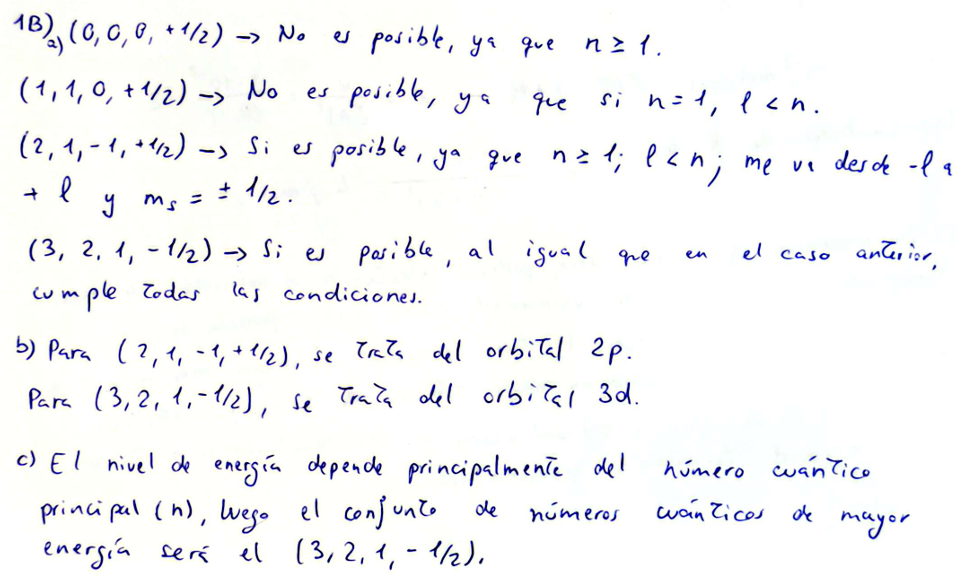 1B) a) (0, 0, 0, +1/2) → No es posible, ya que n ≥ 1.
(1, 1, 0, +1/2) → No es posible, ya que si n = 1, l < n.
(2, 1, -1, +1/2) → Si es posible, ya que n ≥ 1; l < n; me va desde -l a
+ l y ms = ± 1/2.
(3, 2, 1, -1/2) → Si es posible, al igual que en el caso anterior,
cumple todas las condiciones.
b) Para (2, 1, -1, +1/2), se trata del orbital 2p.
Para (3, 2, 1, -1/2), se trata del orbital 3d.
c) El nivel de energía depende principalmente del número cuántico
principal (n), luego el conjunto de números cuánticos de mayor
energía será el (3, 2, 1, -1/2).